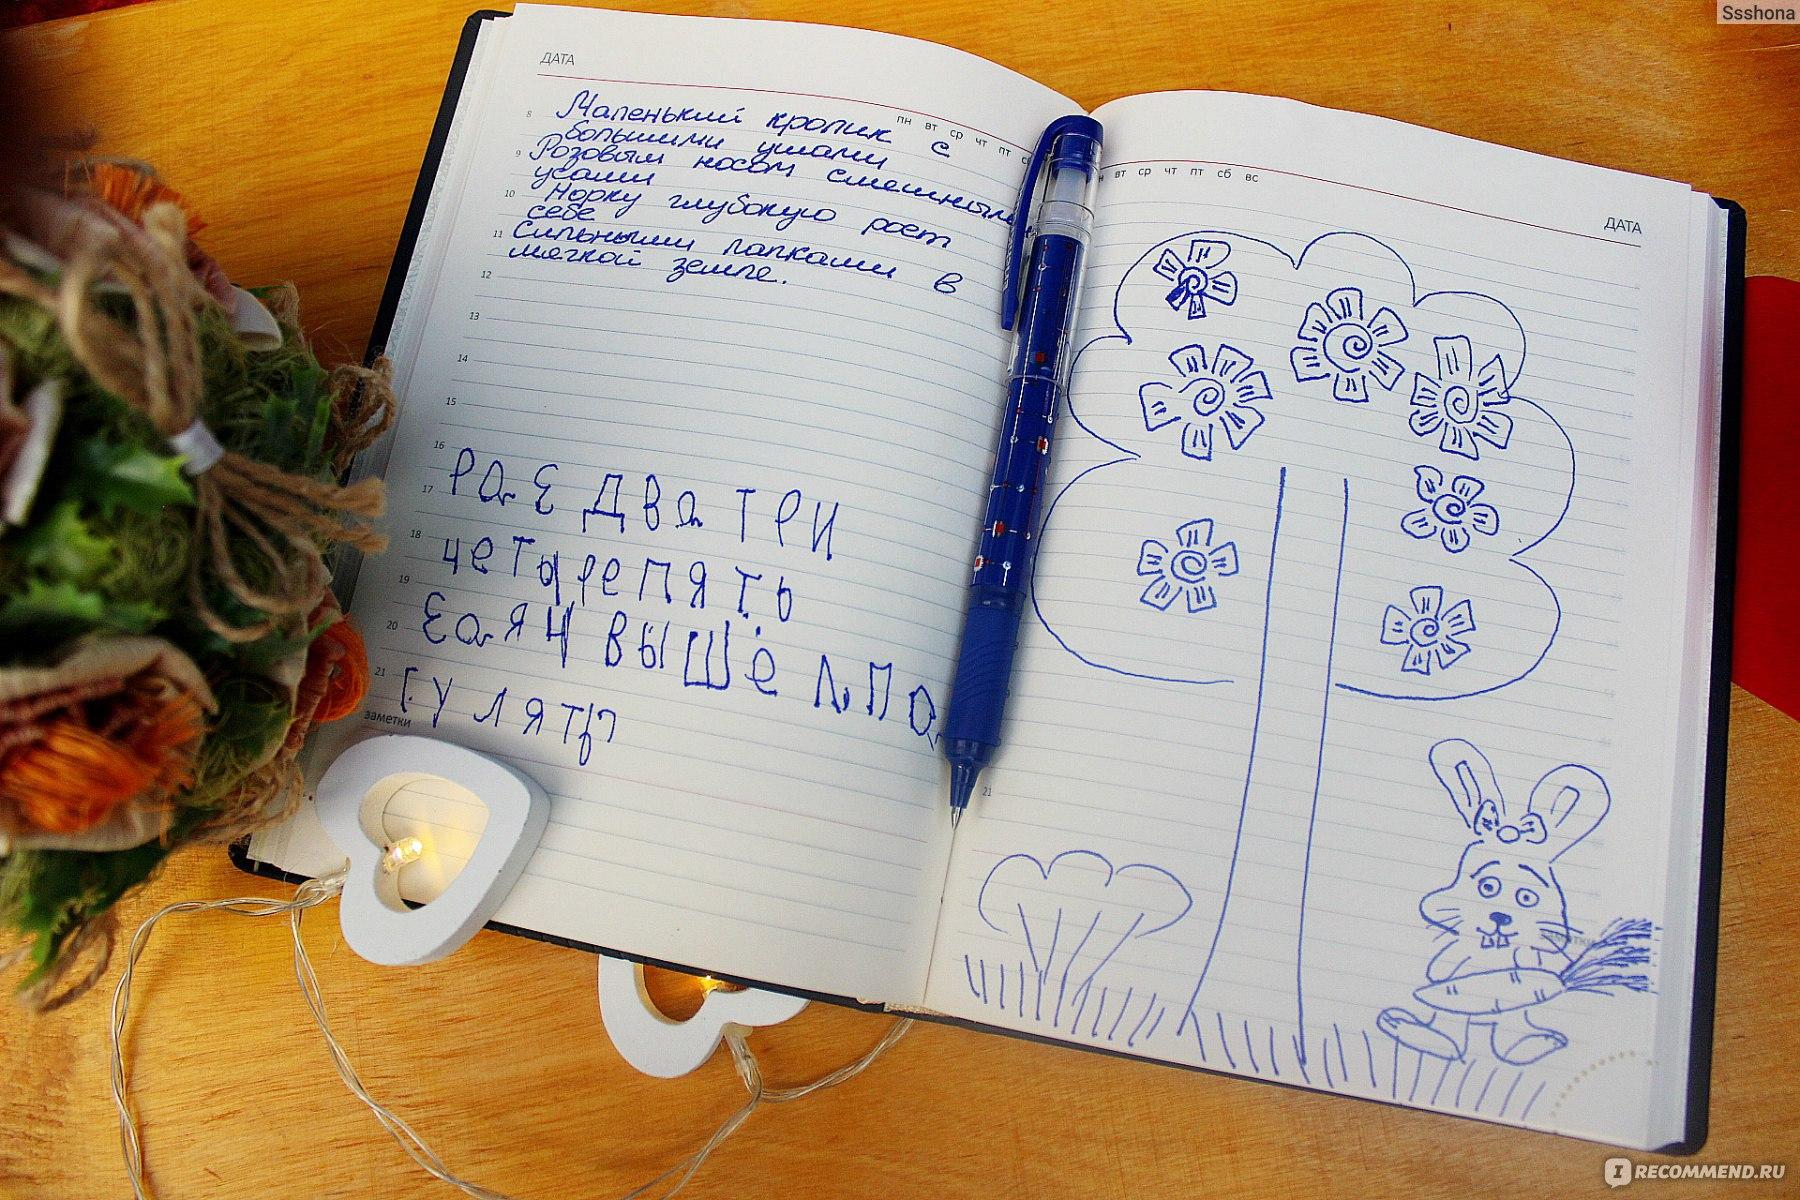 Ssshona
ДАТА
пн вт ср чт пт
8 Маленький кролик с
большими ушами
9 Розовым носом смешными
усами
10 Норку глубокую роет
себе
11 Сильными лапками в
мягкой земле.
12
13
14
15
16
17 РАЕ ДВА ТРИ
18 ЧЕТЫРЕ ПЯТЬ
19
20 ЕАЯЦ ВЫШЕЛ ПО
21 ГУЛЯТЬ
заметки
вт ср чт пт сб вс
ДАТА
21
заметки
IRECOMMEND.RU